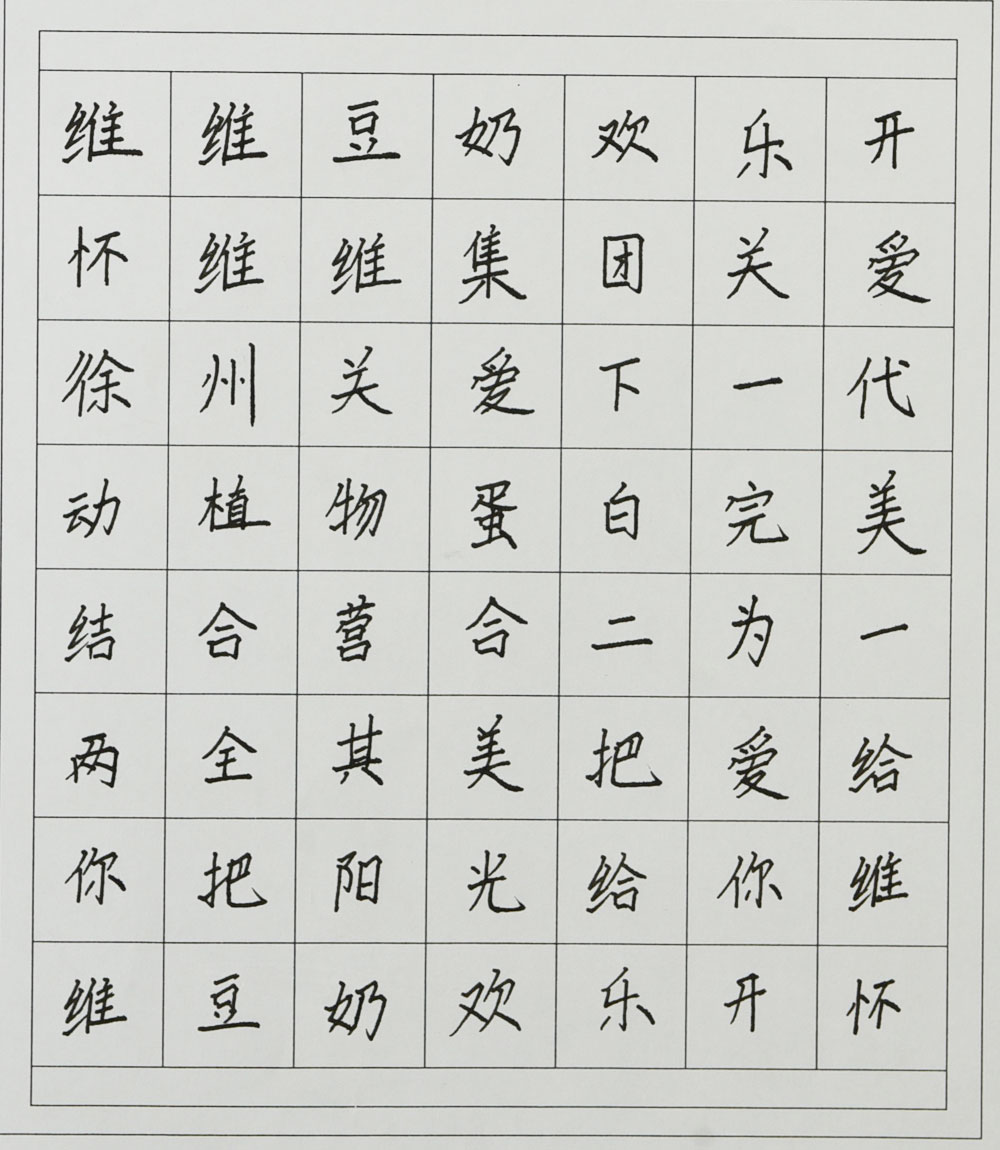 维维豆奶欢乐开
怀维维集团关爱
徐州关爱下一代
动植物蛋白完美
结合营合二为一
两全其美把爱给
你把阳光给你维
维豆奶欢乐开怀